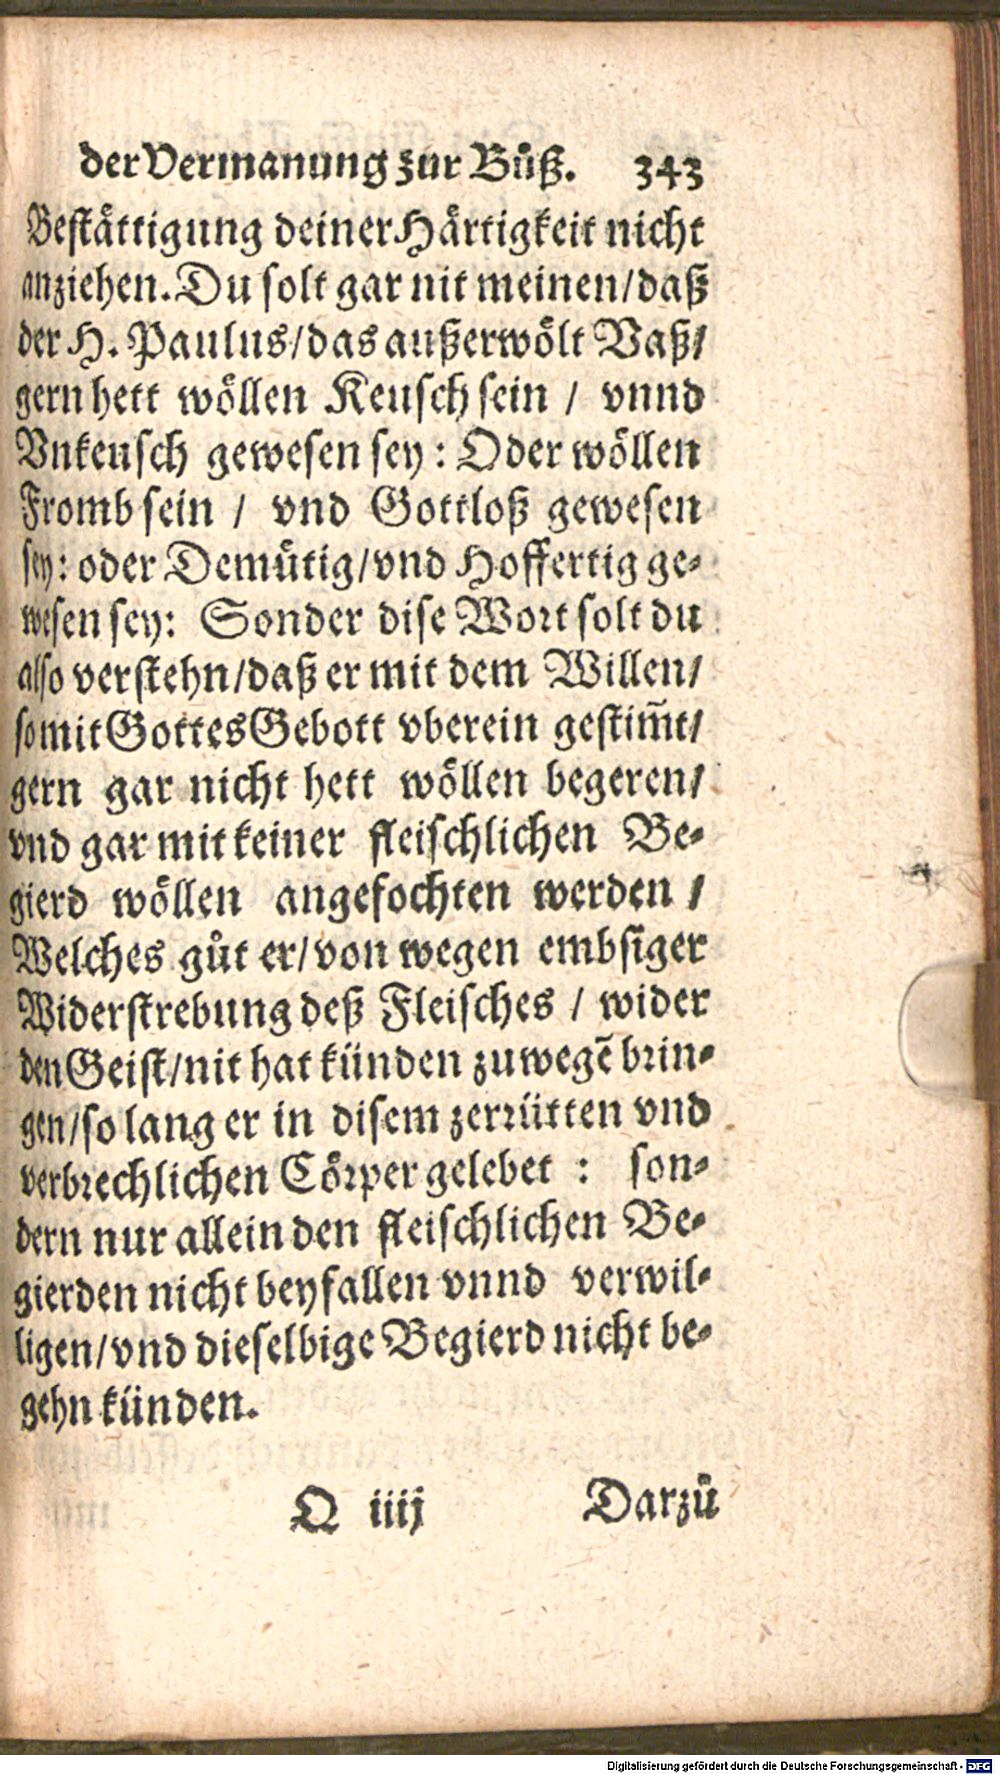 der Vermanung zur Buͦß. 343
Bestättigung deiner Härtigkeit nicht
anziehen. Du solt gar nit meinen/daß
der H. Paulus/das außerwölt Vaß/
gern hett wöllen Keusch sein / vnnd
Vnkeusch gewesen sey: Oder wöllen
Fromb sein / vnd Gottloß gewesen
sey: oder Demütig/vnd Hoffertig ge-
wesen sey: Sonder dise Wort solt du
also verstehn/daß er mit dem Willen/
so mit Gottes Gebott vberein gestim̃t/
gern gar nicht hett wöllen begeren/
vnd gar mit keiner fleischlichen Be-
gierd wöllen angefochten werden /
Welches guͦt er/von wegen embsiger
Widerstrebung deß Fleisches / wider
den Geist/nit hat künden zuwegẽ brin-
gen/so lang er in disem zerrütten vnd
verbrechlichen Cörper gelebet : son-
dern nur allein den fleischlichen Be-
gierden nicht beyfallen vnnd verwil-
ligen/vnd dieselbige Begierd nicht be-
gehn künden.
Q iiij Darzuͦ
Digitalisierung gefördert durch die Deutsche Forschungsgemeinschaft - DFG